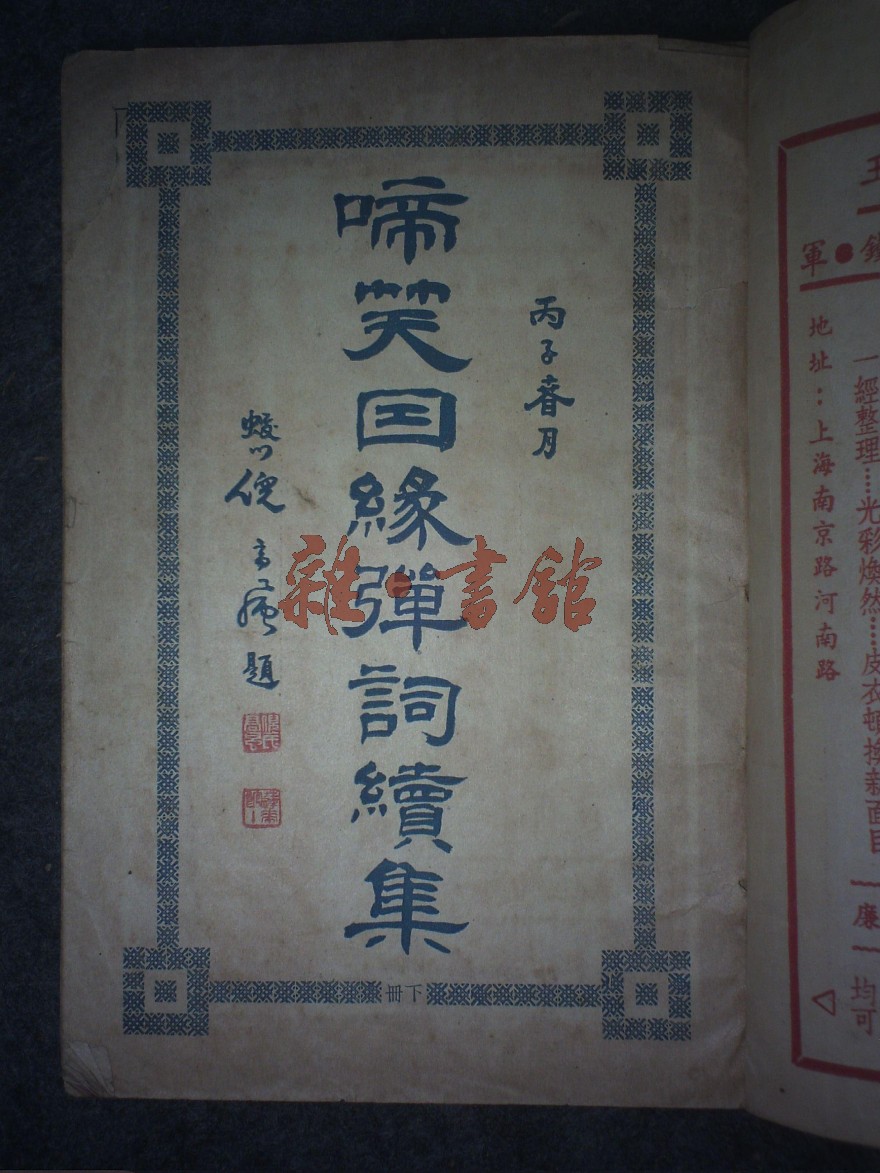 丙子春月
啼笑因緣彈詞續集
蛟川倪高風題
下冊
雜·書館
軍●鐘
地址：上海南京路河南路
一經整理……光彩煥然……皮衣頓換新面目
廉
均可